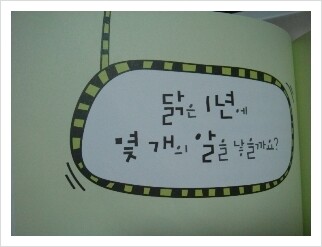 닭은 1년에
몇 개의 알을 낳을까요?